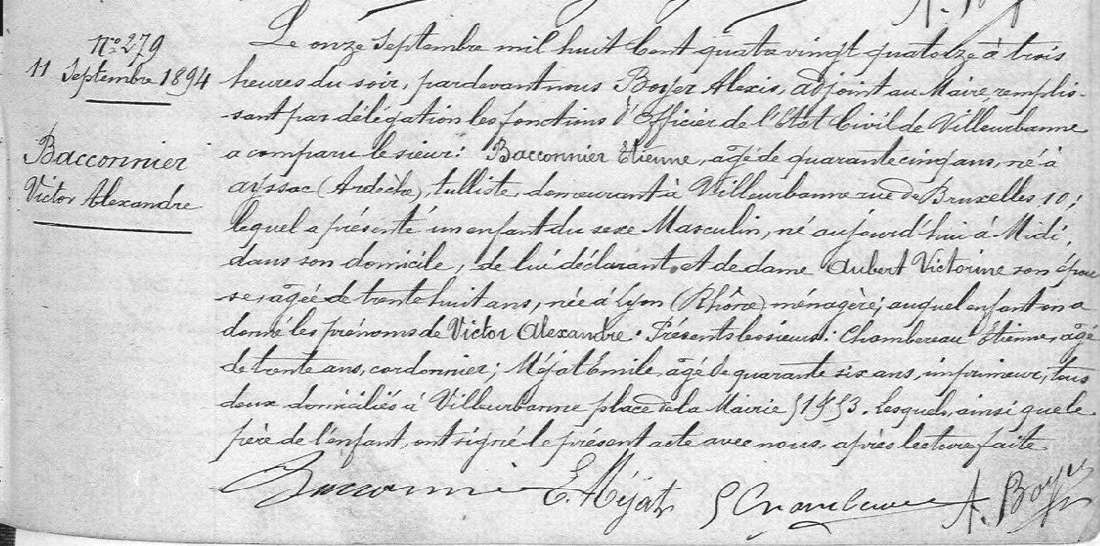 N° 279
11 Septembre 1894
Bacconnier
Victor Alexandre
Le onze Septembre mil huit Cent quatre vingt quatorze à trois
heures du soir, pardevant nous Boyer Alexis, adjoint au Maire, remplis-
sant par délégation les fonctions d'Officier de l'Etat Civil de Villeurbanne
a comparu le sieur: Bacconnier Etienne, agé de quarante cinq ans, né à
ayssac (Ardèche), tulliste, demeurant à Villeurbanne rue de Bruxelles 10;
lequel a présenté un enfant du sexe Masculin, né aujourd'hui à Midi,
dans son domicile, de lui déclarant, et de dame Aubert Victorine son épou
se, agée de trente huit ans, née à Lyon (Rhône) ménagère; auquel enfant on a
donné les prénoms de Victor Alexandre. Présents les sieurs: Chambereau Etienne, agé
de trente ans, cordonnier; Méjat Emile, agé de quarante six ans, imprimeur, tous
deux domiciliés à Villeurbanne place de la Mairie. Lesquels, ainsi que le
père de l'enfant, ont signé le présent acte avec nous, après lecture faite
Bacconnier E. Méjat A. Boyer